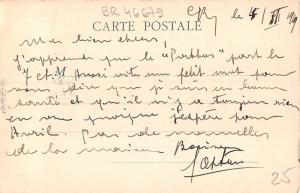 BR 46679
CARTE POSTALE
le 4/II
Mes biens chers,
J'apprends que le "Porthos" part le
7 et M aussi vite un petit mot pour
vous dire que je suis en bonne
santé et que il n'y a toujours rien
en vue quoique j'espère pour
Avril. Pas de nouvelles
de la maison Baisers
25